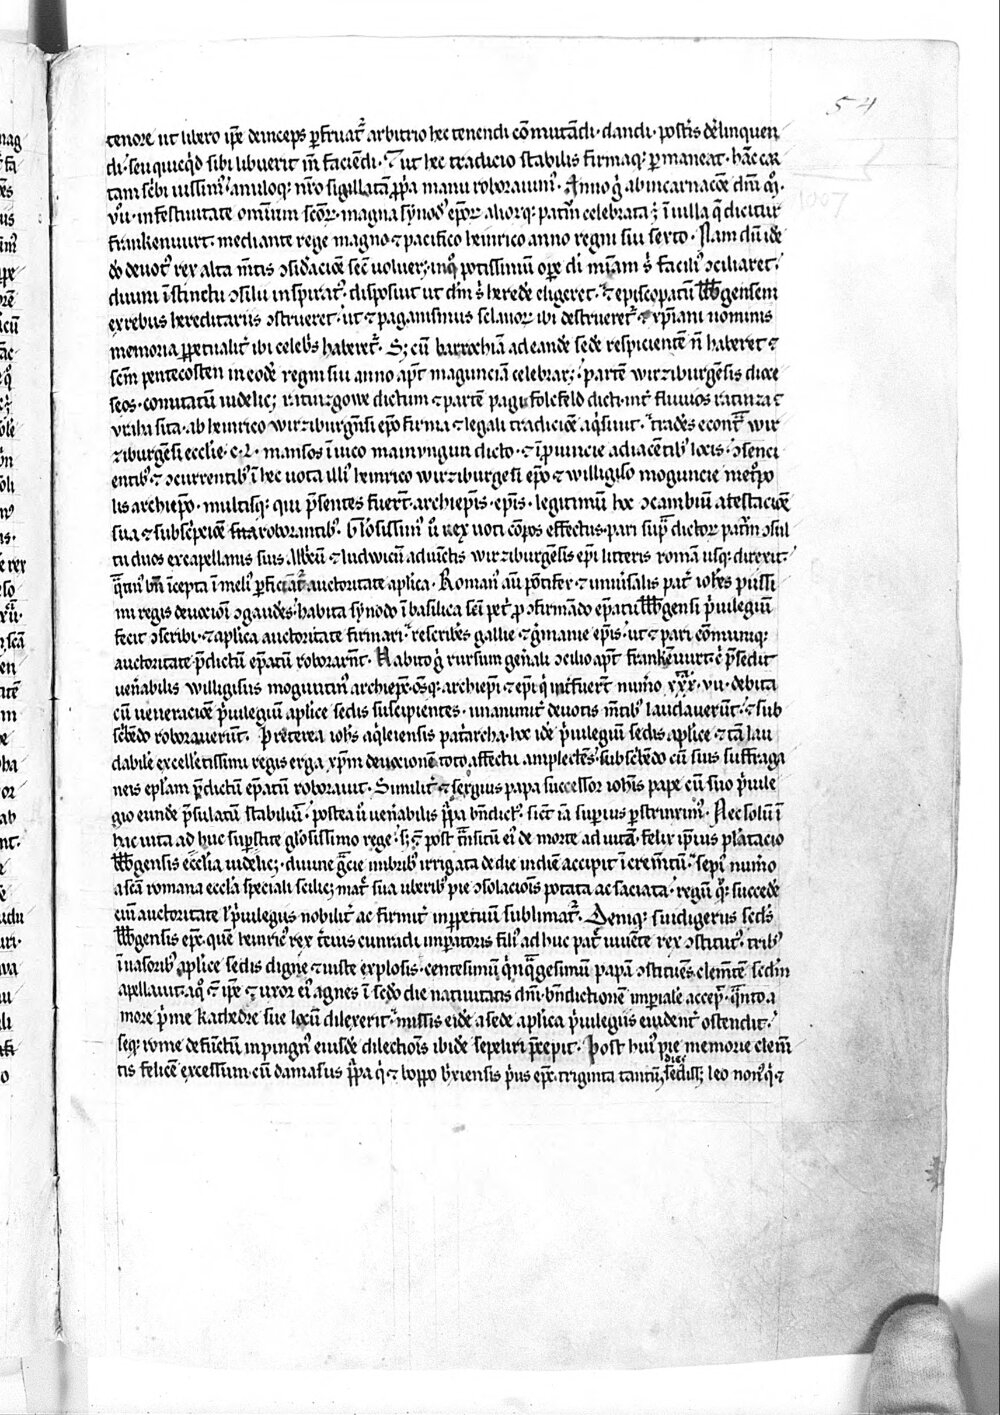 54
1007
tenore ut libero ip̄e deinceps ꝑfruat᷑ arbitrio hec tenendi cōmutādi · dandi · post͛is derelinquen
di · seu quicq̇d sibi libuerit in̄ faciēdi · ⁊ ut hec tradicio stabilis firmaq; ꝑmaneat · hāc car
tam sc̄bi iussim᷒ · anuloq; nr̄o sigillatā ꝓpa manu roborauim᷒ · Anno g̊ ab incarnacōe dn̄i M̊.
vıı · in festiuitate omniū scōꝝ · magna synod᷒ ep̄oꝝ alioꝝq; patrū celebrata ē i uilla q̄ dicitur
frankenuurt · mediante rege magno ⁊ pacifico heinrico anno regni sui sexto · Nam dū ide
dō deuot᷒ rex alta m̄tis ↄsid̄acōe sec̄ uoluer; · in q̊ potissimū oꝑe di mīam s᷒ facili᷒ ↄciliaret ·
diuini īstinctu ↄsilii inspirat᷒ · disposuit ut dm̄ s᷒ herede eligeret · ⁊ episcopatū bbb̄gensem
ex rebus hereditariis ↄstrueret · ut ⁊ paganismus sclauoꝝ ibi destrueret᷑ ⁊ xp̄iani nominis
memoria ꝑpetualit͛ ibi celeb͛s haberet᷑ · S; cū barrochiā ad eande sede respiciente n̄ haberet ⁊
sc̄m pentecosten in eodē regni sui anno ap̄t magunciā celebrar; · partē wirziburgēsis dioce
seos · comitatū uidelic; ratinzgowe dictum ⁊ partē pagi folcfeld dicti · int͛ fluuios ratinza ⁊
vraha sita · ab heinrico wirziburgn̄si ep̄o firma ⁊ legali tradicōe aq̇siuit · tradēs econt͛ wir
ziburgēsi ecclīe · c · l · mansos ī uico mainyngun dicto · ⁊ ī ꝓuincie adiacētib᷒ locis · ↄsenci
entib᷒ ⁊ ↄcurrentib᷒ ī hec uota illi᷒ heinrico wirziburgesi ep̄o ⁊ willigiso moguncie met͛po
lis archiep̄o · multisq; qui p̄sentes fuert̄ · archiep̄is · ep̄is · legitimū hoc ↄcambiū atestaciōe
sua ⁊ subscpcōe roborantib᷒ · Gl̄osissim᷒ ů rex uoti cōpos effectus · pari sup̄ dictoꝝ patrū ↄsul
tu duos ex capellanis suis albīcū ⁊ ludwicū adiunctis wirziburgēsis ep̄i litteris romā usq; direxit ·
q̄tin᷒ bn̄ īcepta ī meli᷒ ꝑficiat᷑ auctoritate aplīca · Roman᷒ aū pōtifex ⁊ uniu͛salis pat͛ ioh̄es piissi
mi regis deuocioni ↄgaudēs · habita synodo ī basilica scī pet͛ · ꝓ ↄfirmādo ep̄atu bbb̄gensi p͛uilegiū
fecit ↄscribi · ⁊ aplīca auctoritate firmari · rescribēs gallie ⁊ g͛manie ep̄is · ut ⁊ pari cōmuniq;
auctoritate p̄dictū ep̄atū roborarēt · Habito g̊ rursum gen͛ali ↄcilio ap̄t frankenuurt · ē p̄sedit
uen͛abilis willigisus moguntin᷒ archiep̄c · om̄sq; archiep̄i ⁊ ep̄i q̇ int͛fuer̄t num͛o xxx · vıı · debita
cū ueneraciōe p͛uilegiū aplīce sedis suscipientes · unanimit͛ deuotis m̄tib᷒ laudauer̄t · ⁊ sub
sc͛bēdo roborauer̄t · Pretera ioh̄s aq̇leiensis pat͛archa · hoc ide p͛uilegiū sedis aplīce ⁊ tā lau
dabilē excellētissimi regis erga xp̄m deuocionē toto affectu amplectēs · subsc͛bēdo cū suis suffraga
neis ep̄lam p̄dictū ep̄atū roborauit · Similit͛ ⁊ sergius papa successor ioh̄is pape cū suo p͛uile
gio eundē p̄sulatū stabiliū · postea ů uen͛abilis pp̄a bn̄dict᷒ · sicut iā superius ꝑstrinxim᷒ · Nec solū ī
hac uita ad huc superstite gl̄osissimo rege · s; ⁊ post t͛nsitū ei᷒ de morte ad uitā · felix ip̄ius plātacio
bbb̄gensis ecclīa uidelic; · diuine gr̄cie imbrib᷒ irrigata de die in diem accipit ī crem̄tū · sepi᷒ num͛o
a scā romana eccla speciali scilic; mat͛ sua uberib᷒ pie ↄsolaciois potata ac saciata · regū q̊; succede
ciū auctoritate ⁊ p͛uilegiis nobilit͛ ac firmit͛ in ꝑpetuum sublimat᷑ · Deniq; suidigerus secd᷒s
bbb̄gensis ep̄c · que heinric᷒ rex t͛cius cunradi imperatoris fili᷒ ad huc pat͛ uiuēte rex ↄstitut᷒ · trib᷒
īuasorib᷒ aplīce sedis digne ⁊ iuste explosis · centesimū q̇nq̄gesimū papā ↄstituēs clem̄tē sed̄m
apellauit · a q̊ ⁊ ip̄e ⁊ uxor ei᷒ agnes ī sc̄do die natiuitatis dn̄i · bn̄dictionē imperialē accep͛ · q̄nto a
more p͛me kathedre sue locū dilexerit · missis eidē a sede aplīca p͛uilegiis euident͛ ostendit ·
seq; rome defūctū in pingn᷒ eiusdē dilectiōis ibidē sepeliri p̄cepit · Post hui᷒ pie memorie clem̄
tis felicē excessum · cū damasus pp̄a q̇ ⁊ boppo brixiensis p͛us ep̄c · triginta tantū dies sediss; leo non᷒ q̇ ⁊